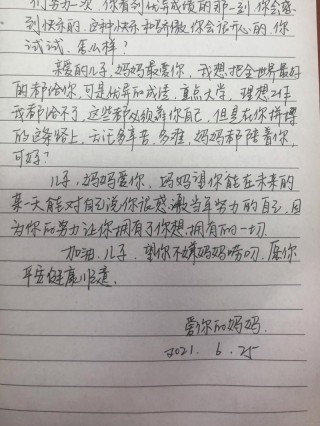 们努力一次,你看到优异成绩的那一刻,你会感
到快乐的,这种快乐和骄傲你会很开心的,你
试试,怎么样?
亲爱的儿子,妈妈最爱你,我想把全世界最好
的都给你,可是优异的成绩,重点大学,理想工作
我都给不了,这些都必须靠你自己,但是在你拼搏
的这条路上,无论多辛苦,多难,妈妈都陪着你,
可好?
儿子,妈妈爱你,妈妈望你能在未来的
某一天能对自己说你很感激当年努力的自己,因
为你的努力让你拥有了你想拥有的一切.
加油,儿子,望你不嫌妈妈唠叨.愿你
平安健康顺遂.
爱你的妈妈.
2021. 6. 25